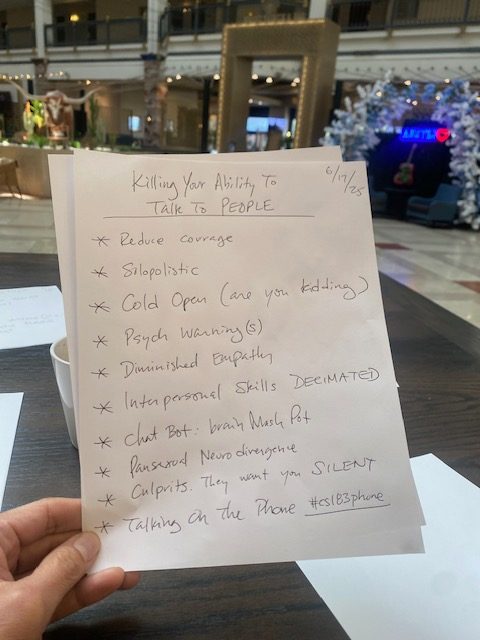 Killing Your Ability To
Talk To PEOPLE
6/17/25
* Reduce courage
* Silopolistic
* Cold Open (are you kidding)
* Psych Warning(s)
* Diminished Empathy
* Interpersonal Skills DECIMATED
* Chat Bot: brain Mush Pot
* Pansexual Neurodivergence
* Culprits. They want you SILENT
* Talking On The Phone #cs183phone
AUSTIN